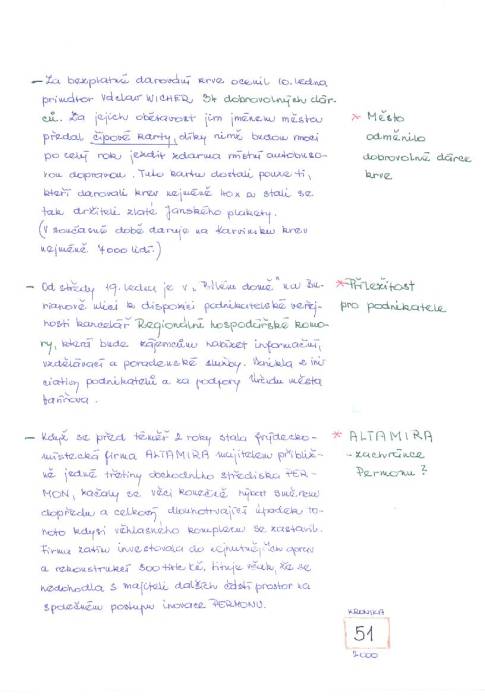 - Za bezplatné darování krve ocenil 10. ledna
primátor Václav WICHER 34 dobrovolných dár-
ců. Za jejich obětavost jim jménem města
předal čipové karty, díky nimž budou moci
po celý rok jezdit zdarma místní autobuso-
vou dopravou. Tuto kartu dostali pouze ti,
kteří darovali krev nejméně 40x a stali se
tak držiteli zlaté Janského plakety.
(V současné době daruje na Karvinsku krev
nejméně 7000 lidí.)
* Město
odměnilo
dobrovolné dárce
krve
- Od středy 19. ledna je v "Bílém domě" na Bu-
rianově ulici k dispozici podnikatelské veřej-
nosti kancelář Regionální hospodářské komo-
ry, která bude zájemcům nabízet informační,
vzdělávací a poradenské služby. Vznikla z ini-
ciativy podnikatelů a za podpory Úřadu města
Karviná.
* Příležitost
pro podnikatele
- Když se před téměř 2 roky stala frýdecko-
místecká firma ALTAMIRA majitelem přibliž-
ně jedné třetiny obchodního střediska PER-
MON, začaly se věci konečně hýbat směrem
dopředu a celkový, dlouhotrvající úpadek to-
hoto kdysi věhlasného komplexu se zastavil.
Firma zatím investovala do nejnutnějších oprav
a rekonstrukcí 300 tisíc kč, lituje však, že se
nedohodla s majiteli dalších částí prostor na
společném postupu inovace PERMONU.
* ALTAMIRA
- zachránce
Permonu?
KRONIKA
51
2000